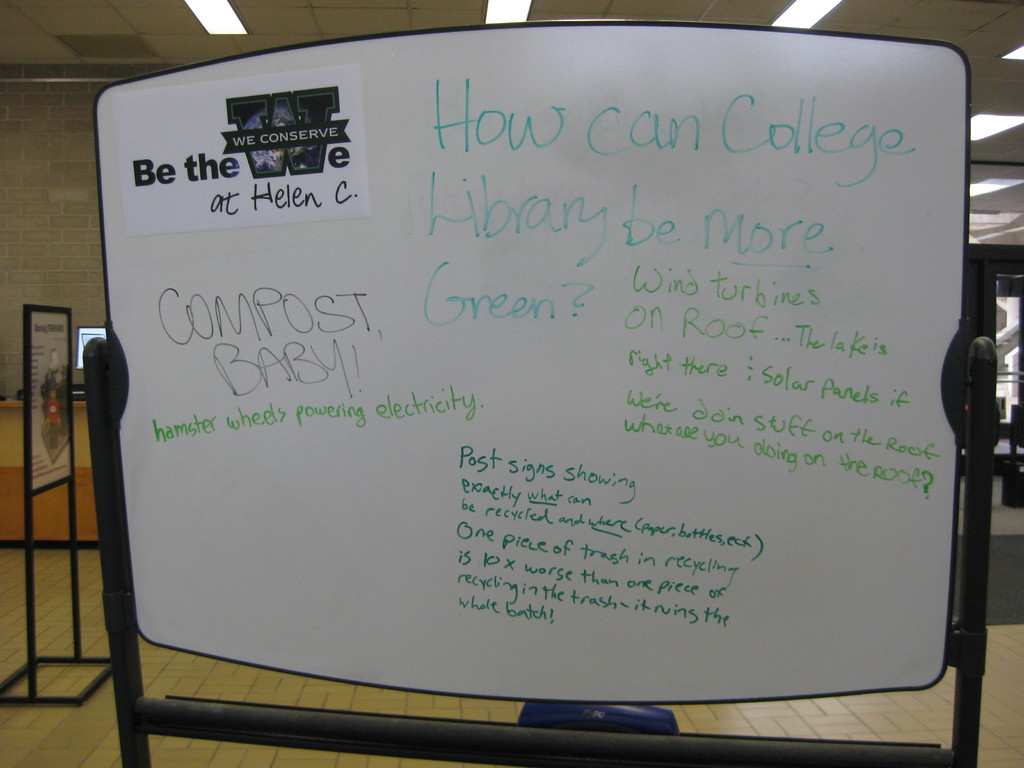 WE CONSERVE
Be the We
at Helen C.
How can College
Library be more
Green?
COMPOST,
BABY!
hamster wheels powering electricity.
Wind turbines
on Roof... The lake is
right there ; Solar panels if
we're doin stuff on the Roof
what are you doing on the roof?
Post signs showing
exactly what can
be recycled and where (paper, bottles, ect.)
One piece of trash in recycling
is 10x worse than one piece of
recycling in the trash - it ruins the
whole batch!